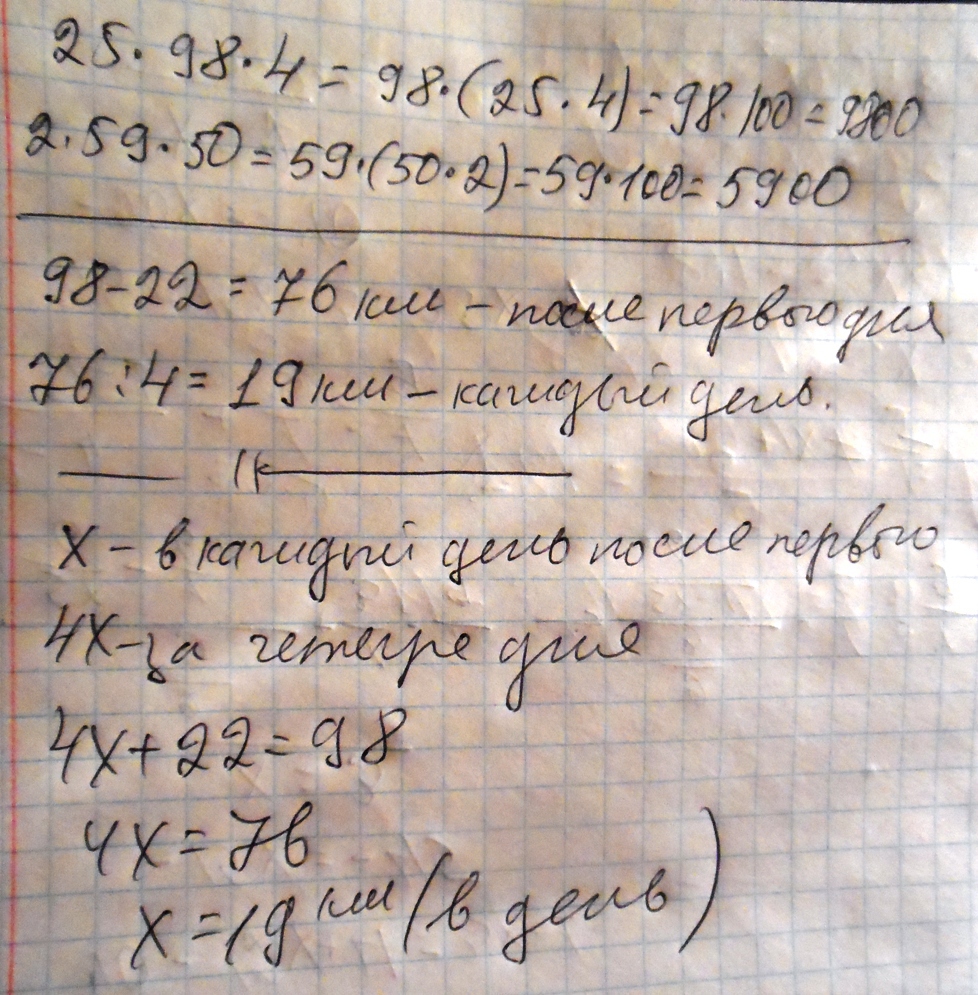 25·98·4=98·(25·4)=98·100=9800
2·59·50=59·(50·2)=59·100=5900
98-22=76км-после первого дня
76:4=19км-каждый день.
X-в каждый день после первого
4X-за четыре дня
4X+22=98
4X=76
X=19км(в день)